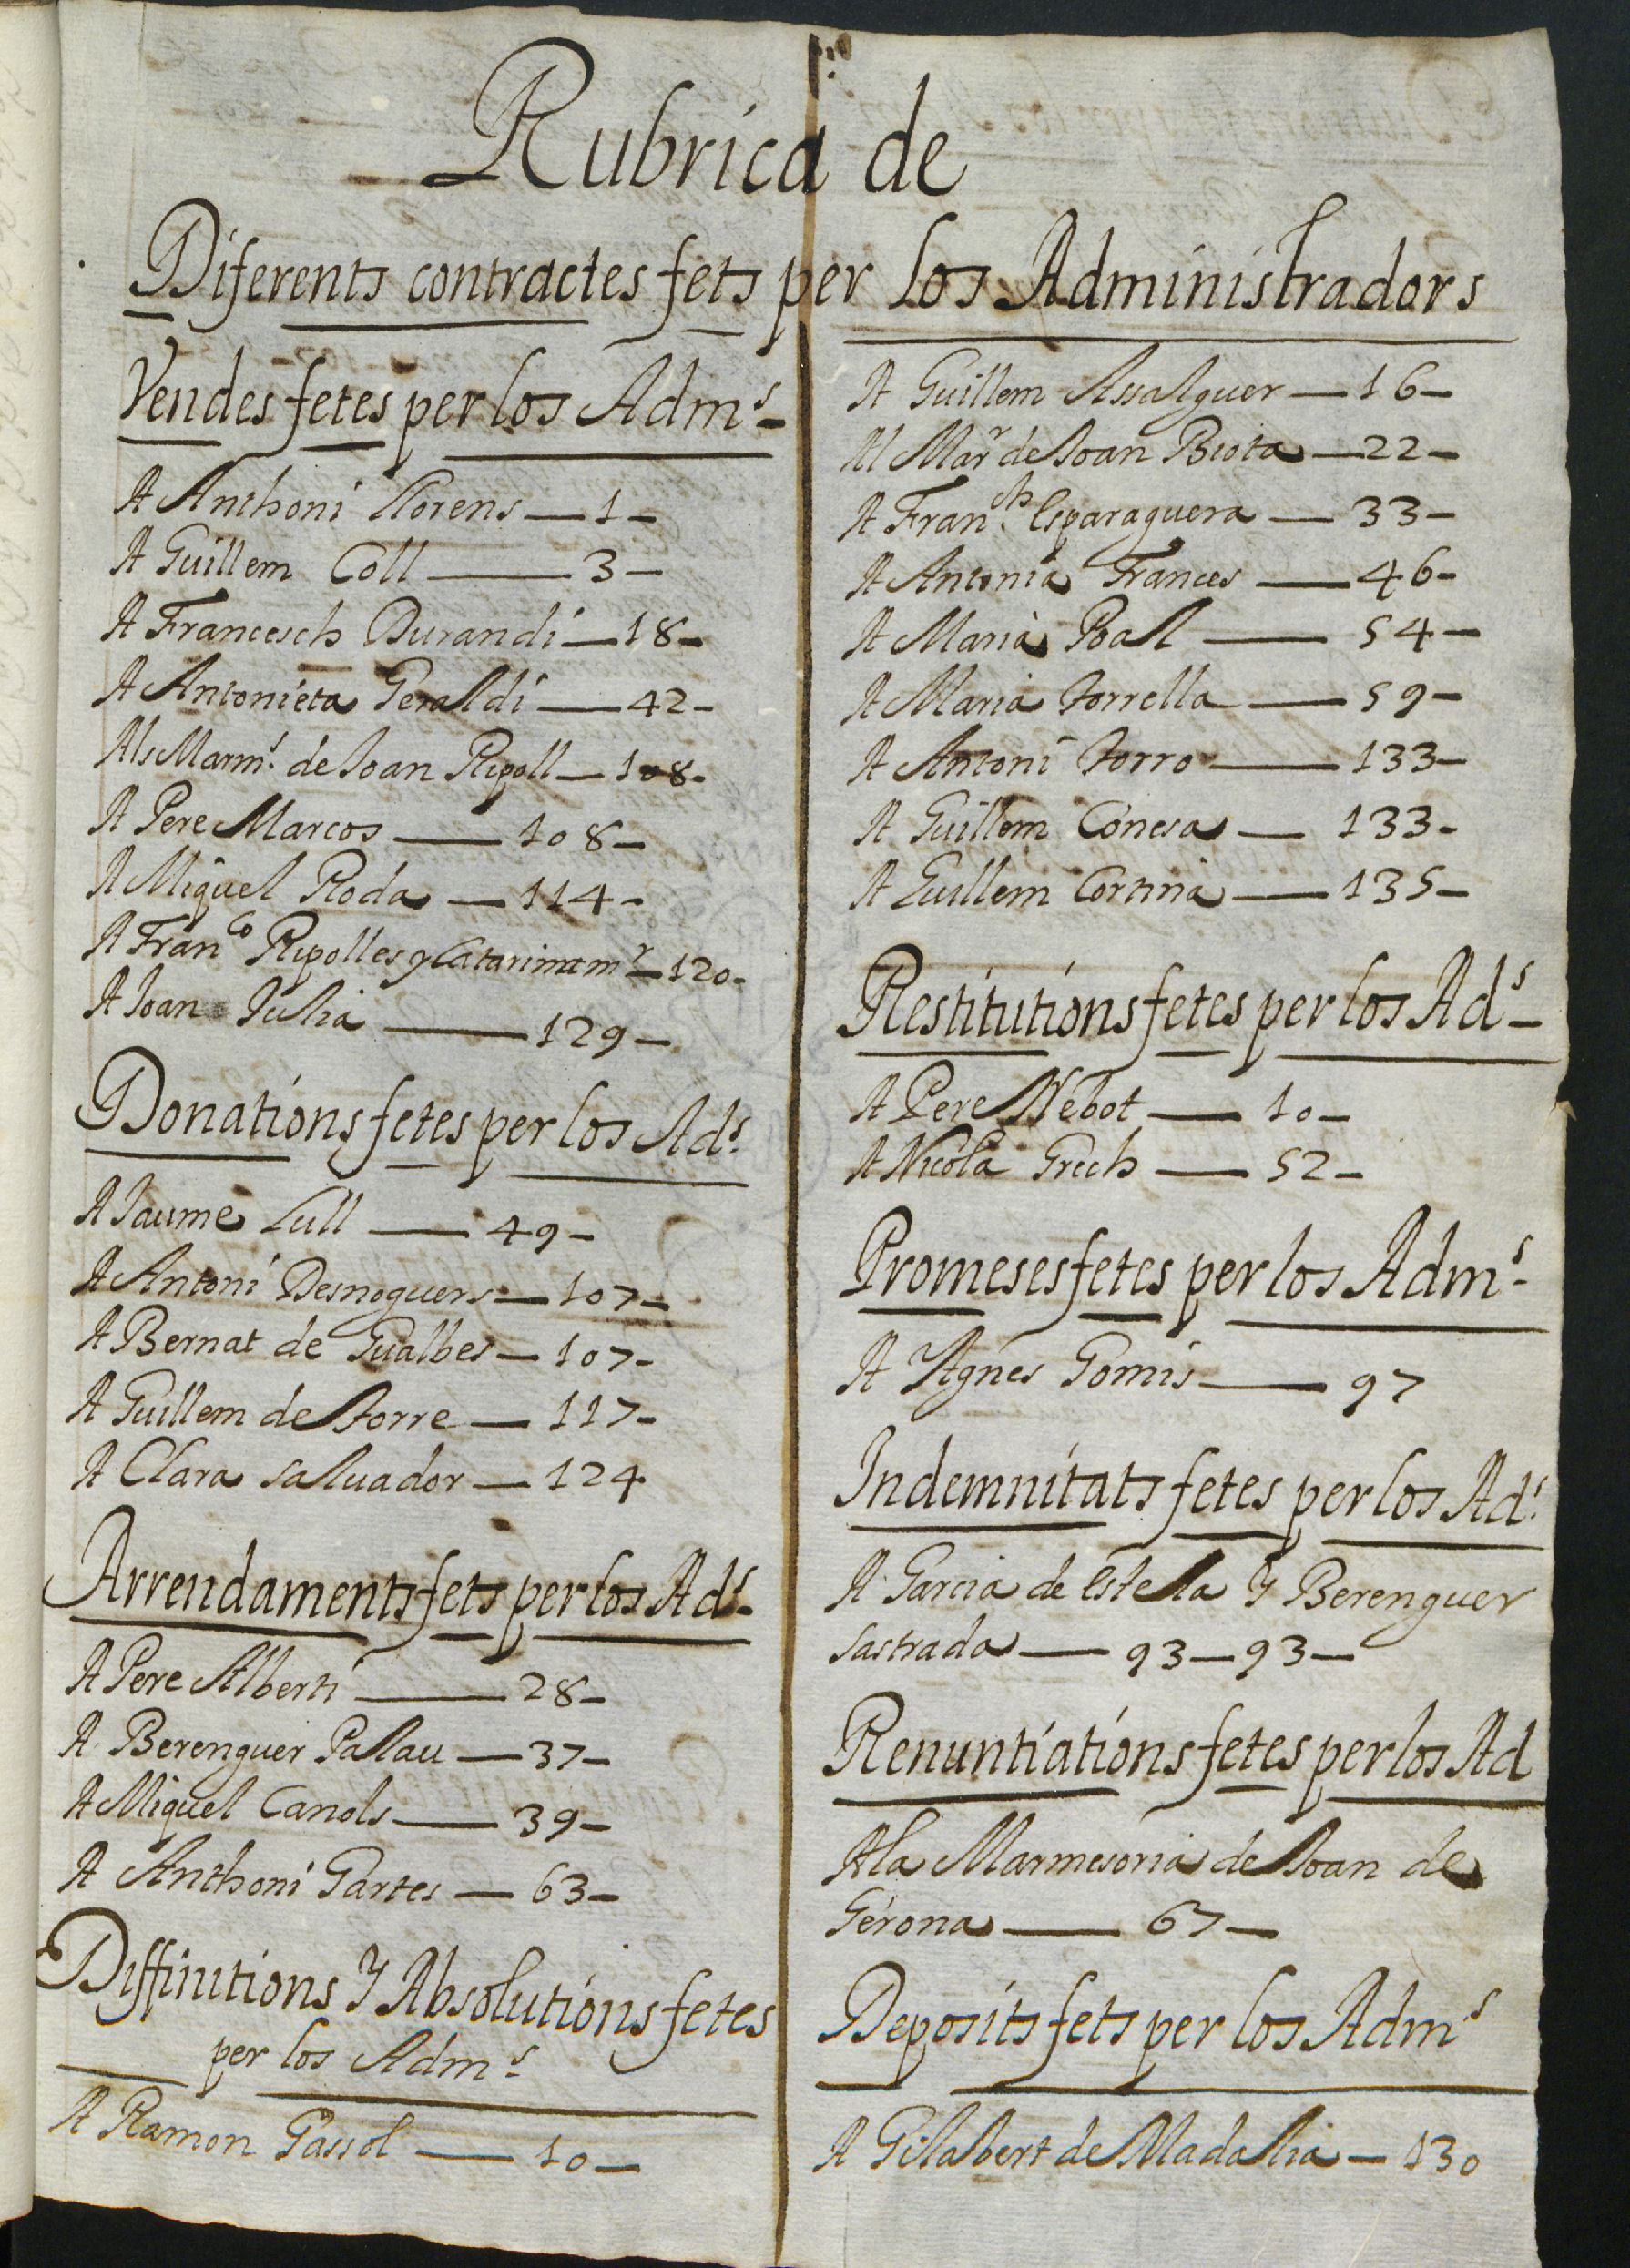 Rubrica de
Diferents contractes fets per los Administradors
Vendes fetes per los Adm.s
A Anthoni Llorens — 1 —
A Guillem Coll — 3 —
A Francesch Durandi — 18 —
A Antonieta Geraldi — 42 —
Als Marm.s de Joan Ripoll — 108 —
A Pere Marcos — 108 —
A Miquel Roda — 114 —
A Fran.co Ripolles y Catarina m.r — 120 —
A Joan Julia — 129 —
Donations fetes per los Ad.s
A Jaume Lull — 49 —
A Antoni Desnoguers — 107 —
A Bernat de Gualbes — 107 —
A Guillem de Torre — 117 —
A Clara Saluador — 124
Arrendaments fets per los Ad.s
A Pere Alberti — 28 —
A Berenguer Palau — 37 —
A Miquel Canols — 39 —
A Anthoni Gartes — 63 —
Diffinitions Y Absolutions fetes
per los Adm.s
A Ramon Gassol — 10 —
A Guillem Assalguer — 16 —
Al Mar.r de Joan Biota — 22 —
A Fran.ch Esparaguera — 33 —
A Antonia Frances — 46 —
A Maria Poal — 54 —
A Maria Torrella — 59 —
A Antoni Torro — 133 —
A Guillem Conesa — 133 —
A Guillem Cortina — 135 —
Restitutions fetes per los Ad.s
A Pere Nebot — 10 —
A Nicola Grech — 52 —
Promeses fetes per los Adm.s
A Agnes Gomis — 97
Indemnitats fetes per los Ad.s
A Garcia de Estella Y Berenguer
Sastrada — 93 — 93 —
Renuntiations fetes per los Ad
A la Marmesoria de Joan de
Gerona — 67 —
Deposits fets per los Adm.s
A Gilabert de Madalia — 130